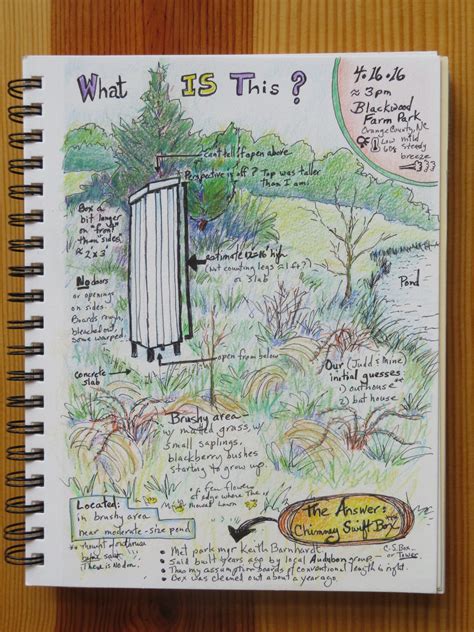 What IS This?
4·16·16
≈ 3pm
Blackwood
Farm Park
Orange County, NC
Low 60s
mild
steady
breeze
can't tell if open above
Perspective is off? Top was taller
than I am!
Box a
bit longer
on "front"
than "sides"
≈ 2' x 3'
No doors
or openings
on sides.
Boards rough,
bleached out,
some warped.
estimate 12-16' high
(not counting legs
or slab
open from below
concrete
slab
Pond
Our (Judd's & Mine)
initial guesses
1) outhouse
2) bat house
Brushy area
w/ matted grass, w/
small saplings,
blackberry bushes
starting to grow up.
* a few flowers
at edge where the
Mowed Lawn
Located:
in brushy area
near moderate-size pond
* thought of outhouse
There is No door.
The Answer:
Chimney Swift Box
C.S. Box
or Tower
• Met park mgr Keith Barnhardt
• Said built years ago by local Audubon group
• Thus my assumption boards of conventional length is right.
• Box was cleaned out about a year ago.